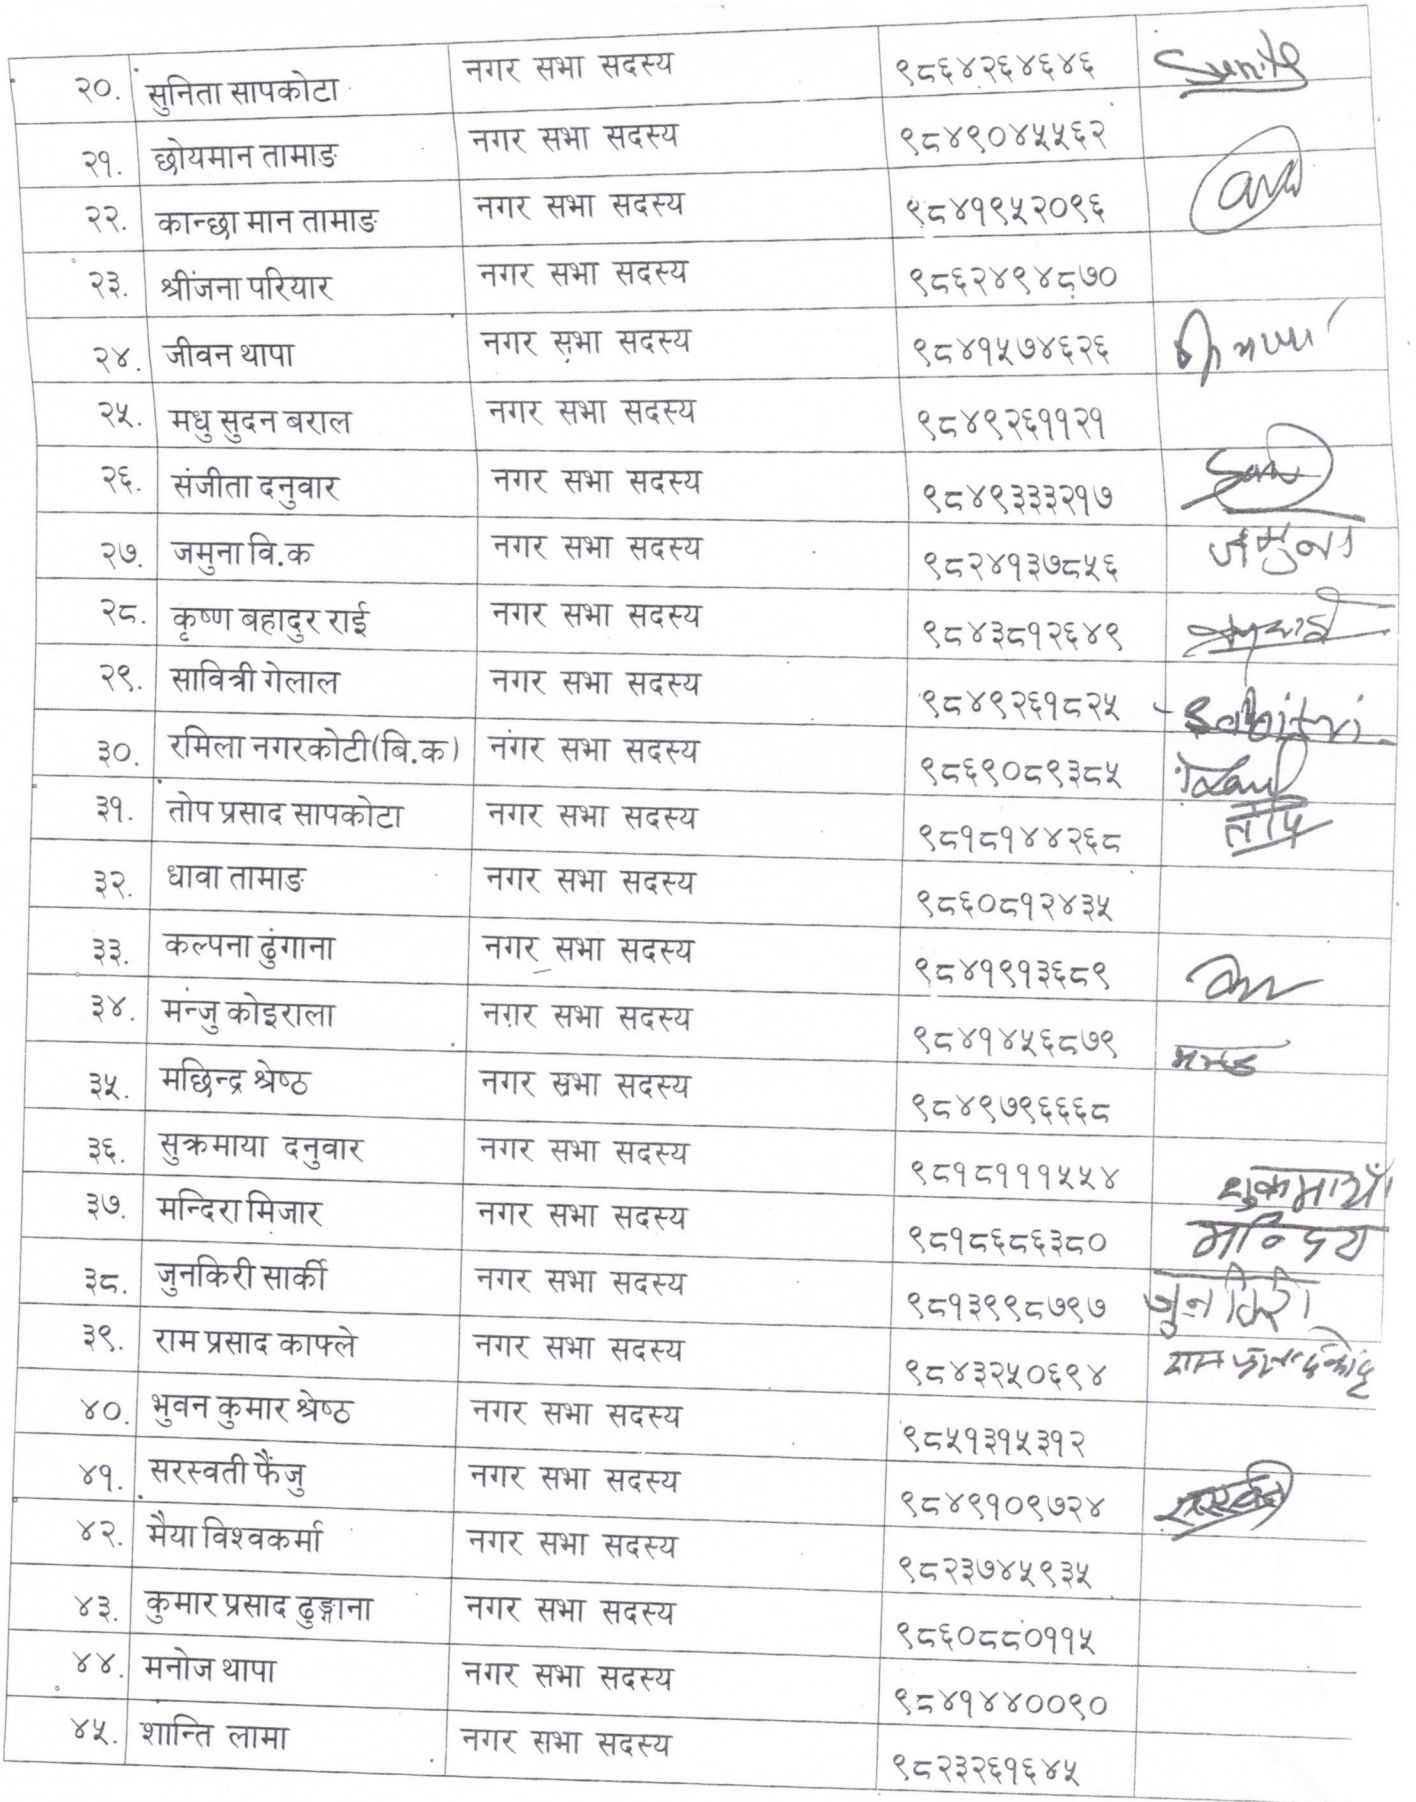 २०. सुनिता सापकोटा नगर सभा सदस्य ९८६४२६४६४६
२१. छोयमान तामाङ नगर सभा सदस्य ९८४९०४५५६२
२२. कान्छा मान तामाङ नगर सभा सदस्य ९८४१९५२०९६
२३. श्रींजना परियार नगर सभा सदस्य ९८६२४९४८७०
२४. जीवन थापा नगर सभा सदस्य ९८४१५७४६२६
२५. मधु सुदन बराल नगर सभा सदस्य ९८४९२६११२१
२६. संजीता दनुवार नगर सभा सदस्य ९८४९३३३२१७
२७. जमुना वि.क नगर सभा सदस्य ९८२४१३७८५६ जमुना
२८. कृष्ण बहादुर राई नगर सभा सदस्य ९८४३८१२६४९
२९. सावित्री गेलाल नगर सभा सदस्य ९८४९२६१८२५ Sabitri
३०. रमिला नगरकोटी(बि.क) नगर सभा सदस्य ९८६९०८९३८५
३१. तोप प्रसाद सापकोटा नगर सभा सदस्य ९८१८१४४२६८ तोप
३२. धावा तामाङ नगर सभा सदस्य ९८६०८१२४३५
३३. कल्पना ढुंगाना नगर सभा सदस्य ९८४१९१३६८९
३४. मन्जु कोइराला नगर सभा सदस्य ९८४१४५६८७९
३५. मछिन्द्र श्रेष्ठ नगर सभा सदस्य ९८४९७९६६६८
३६. सुक्रमाया दनुवार नगर सभा सदस्य ९८१८१११५५४
३७. मन्दिरा मिजार नगर सभा सदस्य ९८१८६८६३८०
३८. जुनकिरी सार्की नगर सभा सदस्य ९८१३९९८७९७ जुनकिरी
३९. राम प्रसाद काफ्ले नगर सभा सदस्य ९८४३२५०६९४
४०. भुवन कुमार श्रेष्ठ नगर सभा सदस्य ९८५१३१५३१२
४१. सरस्वती फैंजु नगर सभा सदस्य ९८४९१०९७२४
४२. मैया विश्वकर्मा नगर सभा सदस्य ९८२३७४५९३५
४३. कुमार प्रसाद ढुङ्गाना नगर सभा सदस्य ९८६०८८०११५
४४. मनोज थापा नगर सभा सदस्य ९८४१४४००९०
४५. शान्ति लामा नगर सभा सदस्य ९८२३२६१६४५